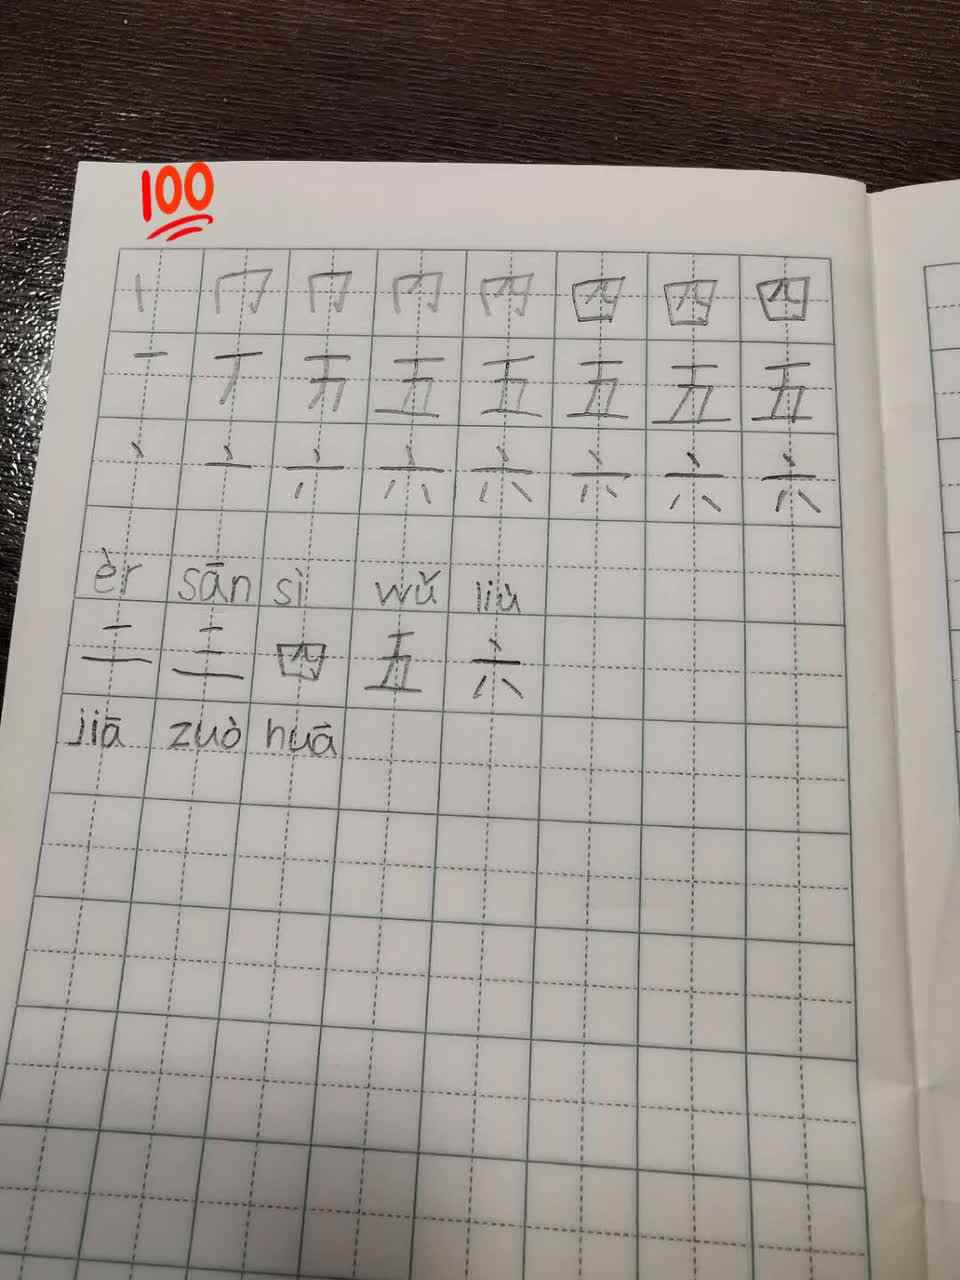 100
丨 冂 冂 冂 四 四 四
一 丆 五 五 五 五 五
丶 亠 六 六 六 六 六
èr sān sì wǔ liù
二 三 四 五 六
jiā zuò huā